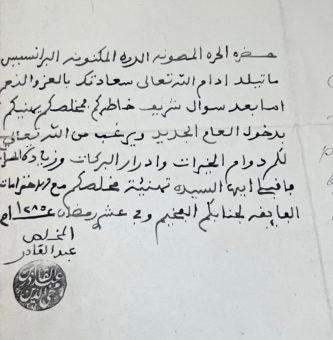 حضرة الحرة المصونه الدرة المكنونه البرانسيس
ماتيلد ادام الله تعالى سعادتكم بالعز والنعم
اما بعد سوال شريف خاطركم مخلصكم يهنيكم
بدخول العام الجديد ويرغب من الله تعالى
لكم دوام الخيرات وادرار البركات وزيادة
ايها السيده تهنئة مخلصكم مع
لجنابكم الفخيم في عشر رمضان ١٢٨٥
المخلص
عبد القادر